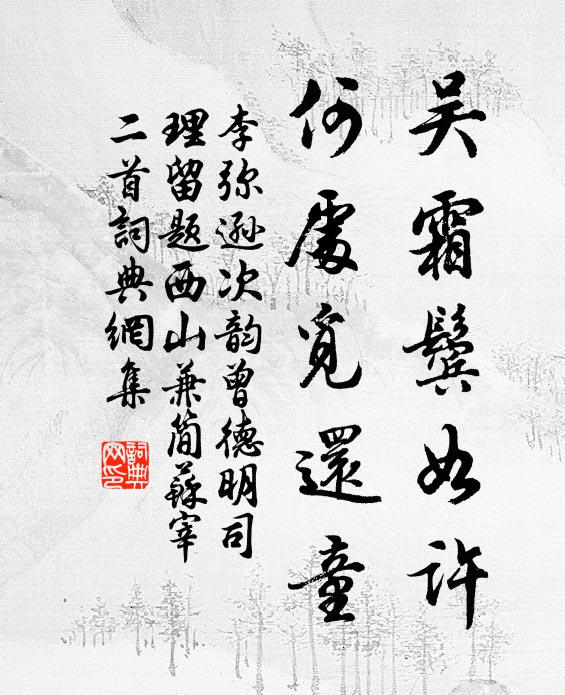 吴霜鬓如许
何處覓還童
李弥遜次韵曾德明司
理留题西山兼简蘇宰
二首詞典網集
詞典网印